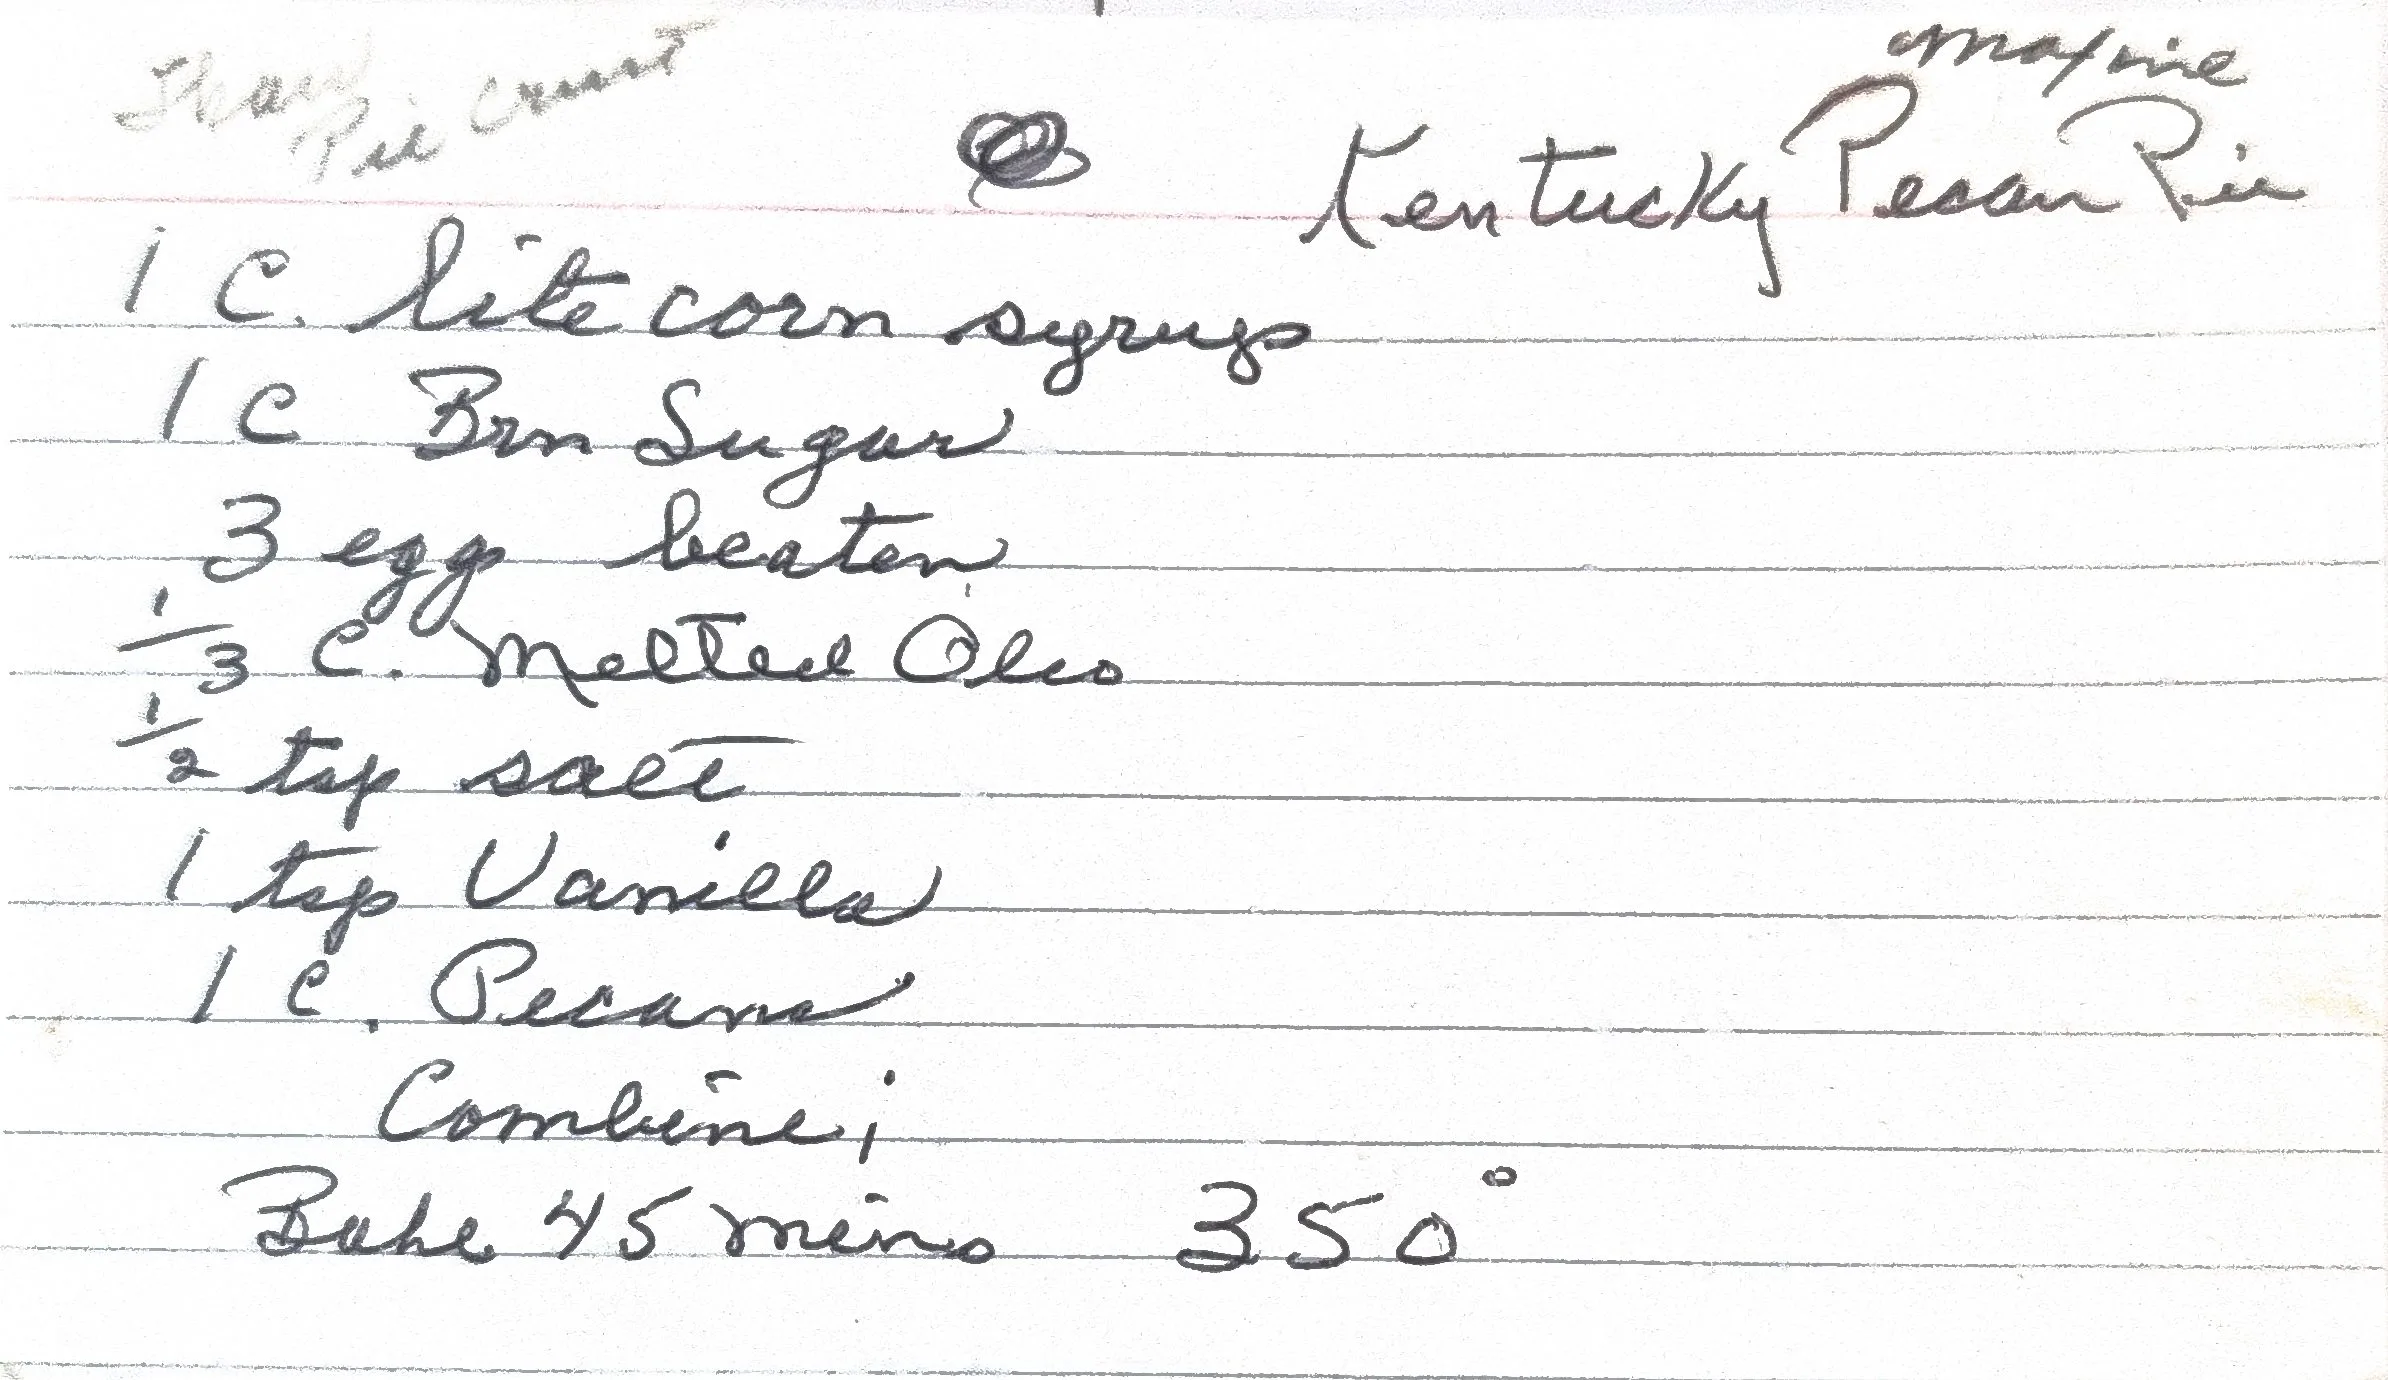 Thaw
Pie Crust
Maxine
Kentucky Pecan Pie
1 C. lite corn syrup
1 C Brn Sugar
3 egg beaten
1/3 C. Melted Oleo
1/2 tsp salt
1 tsp Vanilla
1 C. Pecans
Combine;
Bake 45 mins 350°